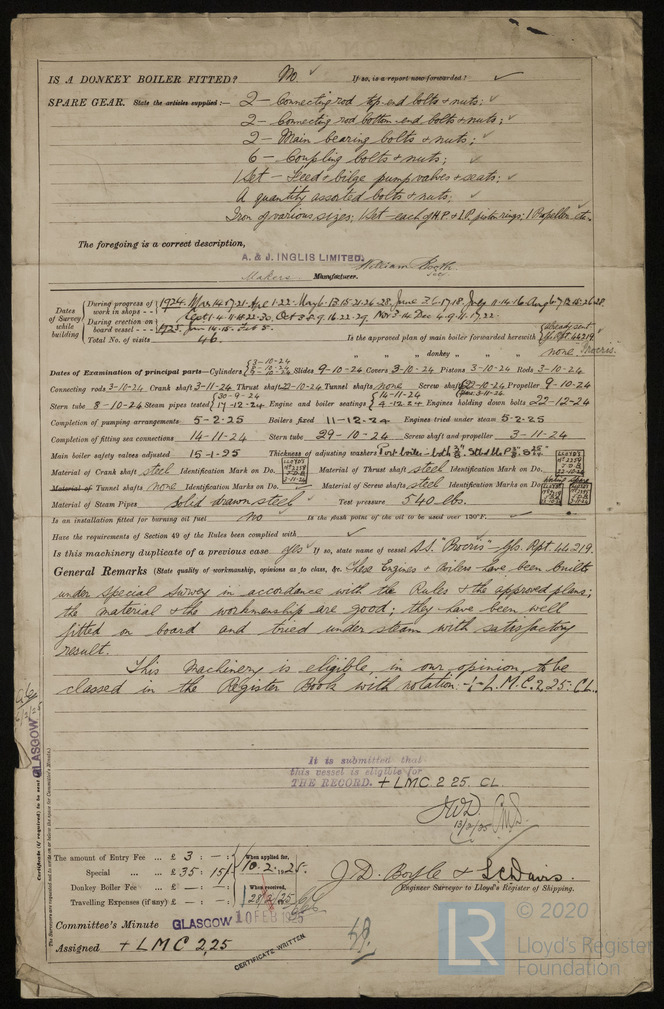 IS A DONKEY BOILER FITTED? No. If so, is a report now forwarded?
SPARE GEAR. State the articles supplied:— 2 — Connecting rod top end bolts & nuts;
2 — Connecting rod bottom end bolts & nuts;
2 — Main bearing bolts & nuts;
6 — Coupling bolts & nuts;
1 Set — Feed & bilge pump valves & seats;
A quantity assorted bolts & nuts;
Iron of various sizes; 1 Set each of H.P & I.P. piston rings; 1 Propeller etc.
The foregoing is a correct description,
A. & J. INGLIS LIMITED.
William Booth
Makers Manufacturer. Secy.
Dates of Survey while building
During progress of work in shops - - 1924. Mar 14·17·21· Apl 1·22· May 6·13·15·21·26·28· June 3·6·17·18· July 11·14·16· Aug 6·7·12·15·26·28.
During erection on board vessel - - - Sept 1·4·11·18·22·30. Oct 3·8·9·16·22·29. Nov 3·14 Dec 4·9·11·17·22.
1925. Jan 14·15. Feb 5.
Total No. of visits 46. Is the approved plan of main boiler forwarded herewith already sent Gls Rpt 44219.
" " " donkey " " " none
Dates of Examination of principal parts—Cylinders 3-10-24 Slides 9-10-24 Covers 3-10-24 Pistons 3-10-24 Rods 3-10-24
Connecting rods 3-10-24 Crank shaft 3-11-24 Thrust shaft 22-10-24 Tunnel shafts none Screw shaft 22-10-24 3-11-24 Propeller 9-10-24
Stern tube 8-10-24 Steam pipes tested 30-9-24 17-12-24 Engine and boiler seatings 14-11-24 4-12-24 Engines holding down bolts 22-12-24
Completion of pumping arrangements 5-2-25 Boilers fixed 11-12-24 Engines tried under steam 5-2-25
Completion of fitting sea connections 14-11-24 Stern tube 29-10-24 Screw shaft and propeller 3-11-24
Main boiler safety valves adjusted 15-1-25 Thickness of adjusting washers Port boiler - both
Material of Crank shaft steel Identification Mark on Do. Material of Thrust shaft steel Identification Mark on Do.
Material of Tunnel shafts none Identification Marks on Do. Material of Screw shafts steel Identification Marks on Do.
Material of Steam Pipes Solid drawn steel Test pressure 540 lbs.
Is an installation fitted for burning oil fuel no Is the flash point of the oil to be used over 150°F.
Have the requirements of Section 49 of the Rules been complied with
Is this machinery duplicate of a previous case yes If so, state name of vessel S.S. "Boris" Gls. Rpt. 44219.
General Remarks (State quality of workmanship, opinions as to class, &c. These Engines & Boilers have been built
under Special Survey in accordance with the Rules & the approved plans;
the material & the workmanship are good; they have been well
fitted on board and tried under steam with satisfactory
result.
This machinery is eligible in our opinion to be
classed in the Register Book with notation + L.M.C. 2,25: CL.
GLASGOW
Certificate (if required) to be sent to
(The Surveyors are requested not to write on or below the space for Committee's Minute.)
It is submitted that
this vessel is eligible for
THE RECORD. + LMC 2 25. CL.
13/2/25
The amount of Entry Fee ... £ 3 : — : When applied for,
Special ... £ 35 : 15 : 10.2.1925.
Donkey Boiler Fee ... £ — : — : When received,
Travelling Expenses (if any) £ — : — : 28/2/25
J D. Boyle & S.C. Davis.
Engineer Surveyor to Lloyd's Register of Shipping.
Committee's Minute GLASGOW 10 FEB 1925
Assigned + L M C 2,25
CERTIFICATE WRITTEN
LR
© 2020
Lloyd's Register
Foundation